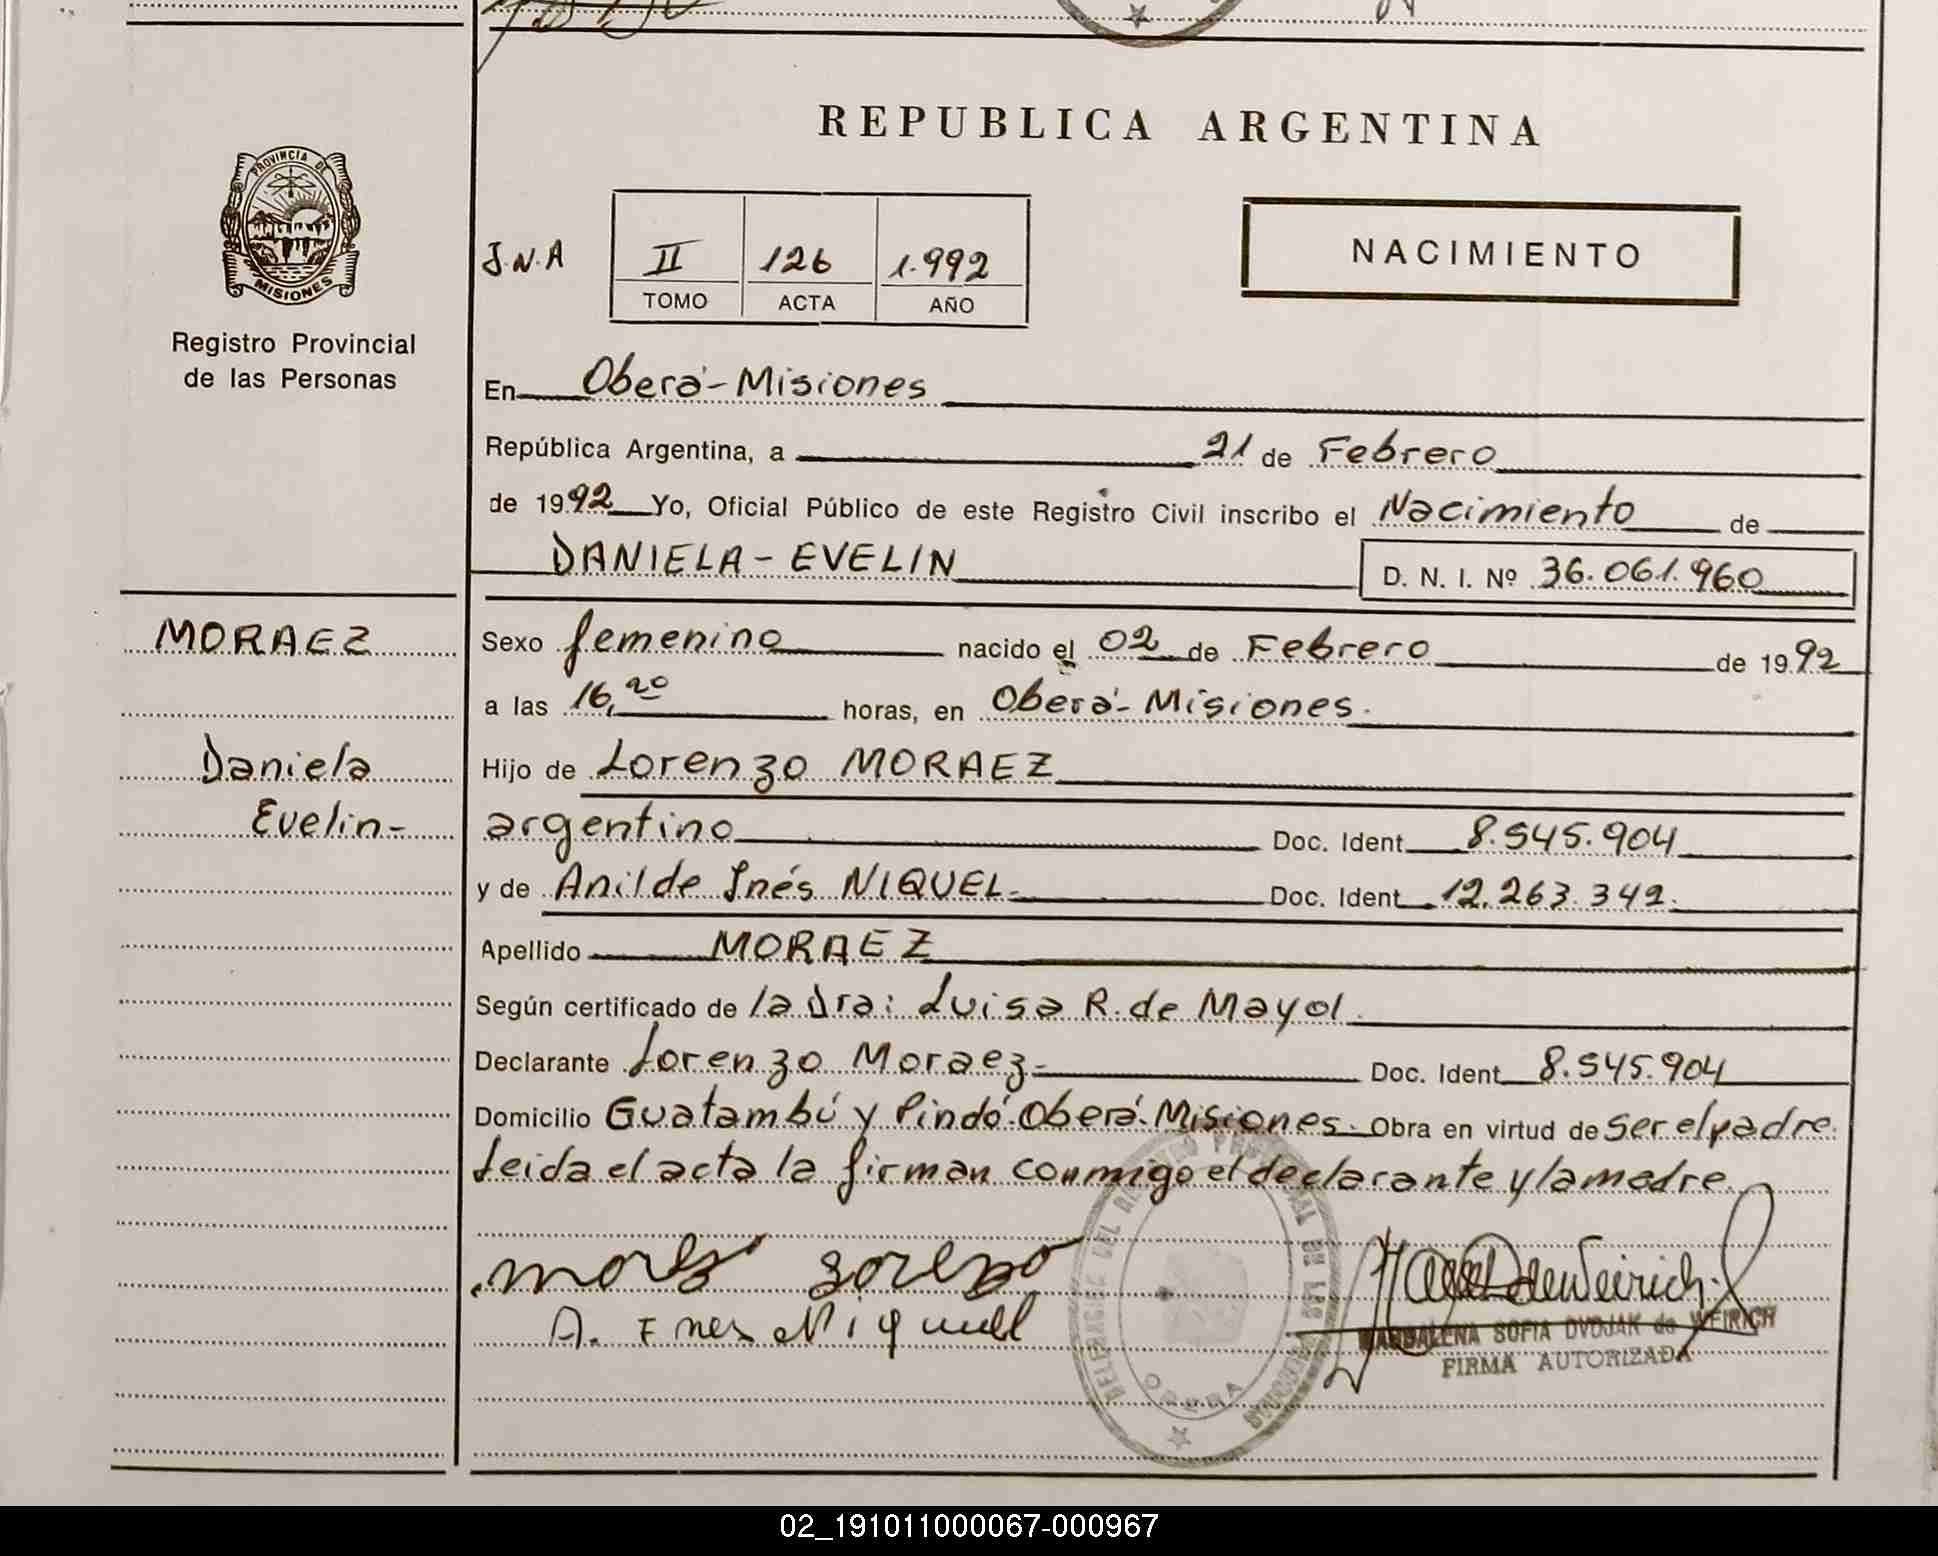 PROVINCIA DE
MISIONES
Registro Provincial
de las Personas
REPUBLICA ARGENTINA
J.N.A
II 126 1.992
TOMO ACTA AÑO
NACIMIENTO
En Oberá-Misiones
República Argentina, a 21 de Febrero
de 1992 Yo, Oficial Público de este Registro Civil inscribo el Nacimiento de
DANIELA-EVELIN D. N. I. Nº 36.061.960
MORAEZ
Daniela
Evelin-
Sexo femenino nacido el 02 de Febrero de 1992
a las 16,20 horas, en Oberá-Misiones.
Hijo de Lorenzo MORAEZ
argentino Doc. Ident 8.545.904
y de Anilde Inés NIQUEL- Doc. Ident 12.263.342.
Apellido MORAEZ
Según certificado de la Dra: Luisa R. de Mayol.
Declarante Lorenzo Moraez- Doc. Ident 8.545.904
Domicilio Guatambú y Pindó-Oberá-Misiones. Obra en virtud de ser el padre.
Leida el acta la firman conmigo el declarante y la madre.
A. Enes Niquell
MAGDALENA SOFIA DVOJAK de WEIRICH
FIRMA AUTORIZADA
DELEGACION DEL REGISTRO PROVINCIAL DE LAS PERSONAS
OBERA
02_191011000067-000967